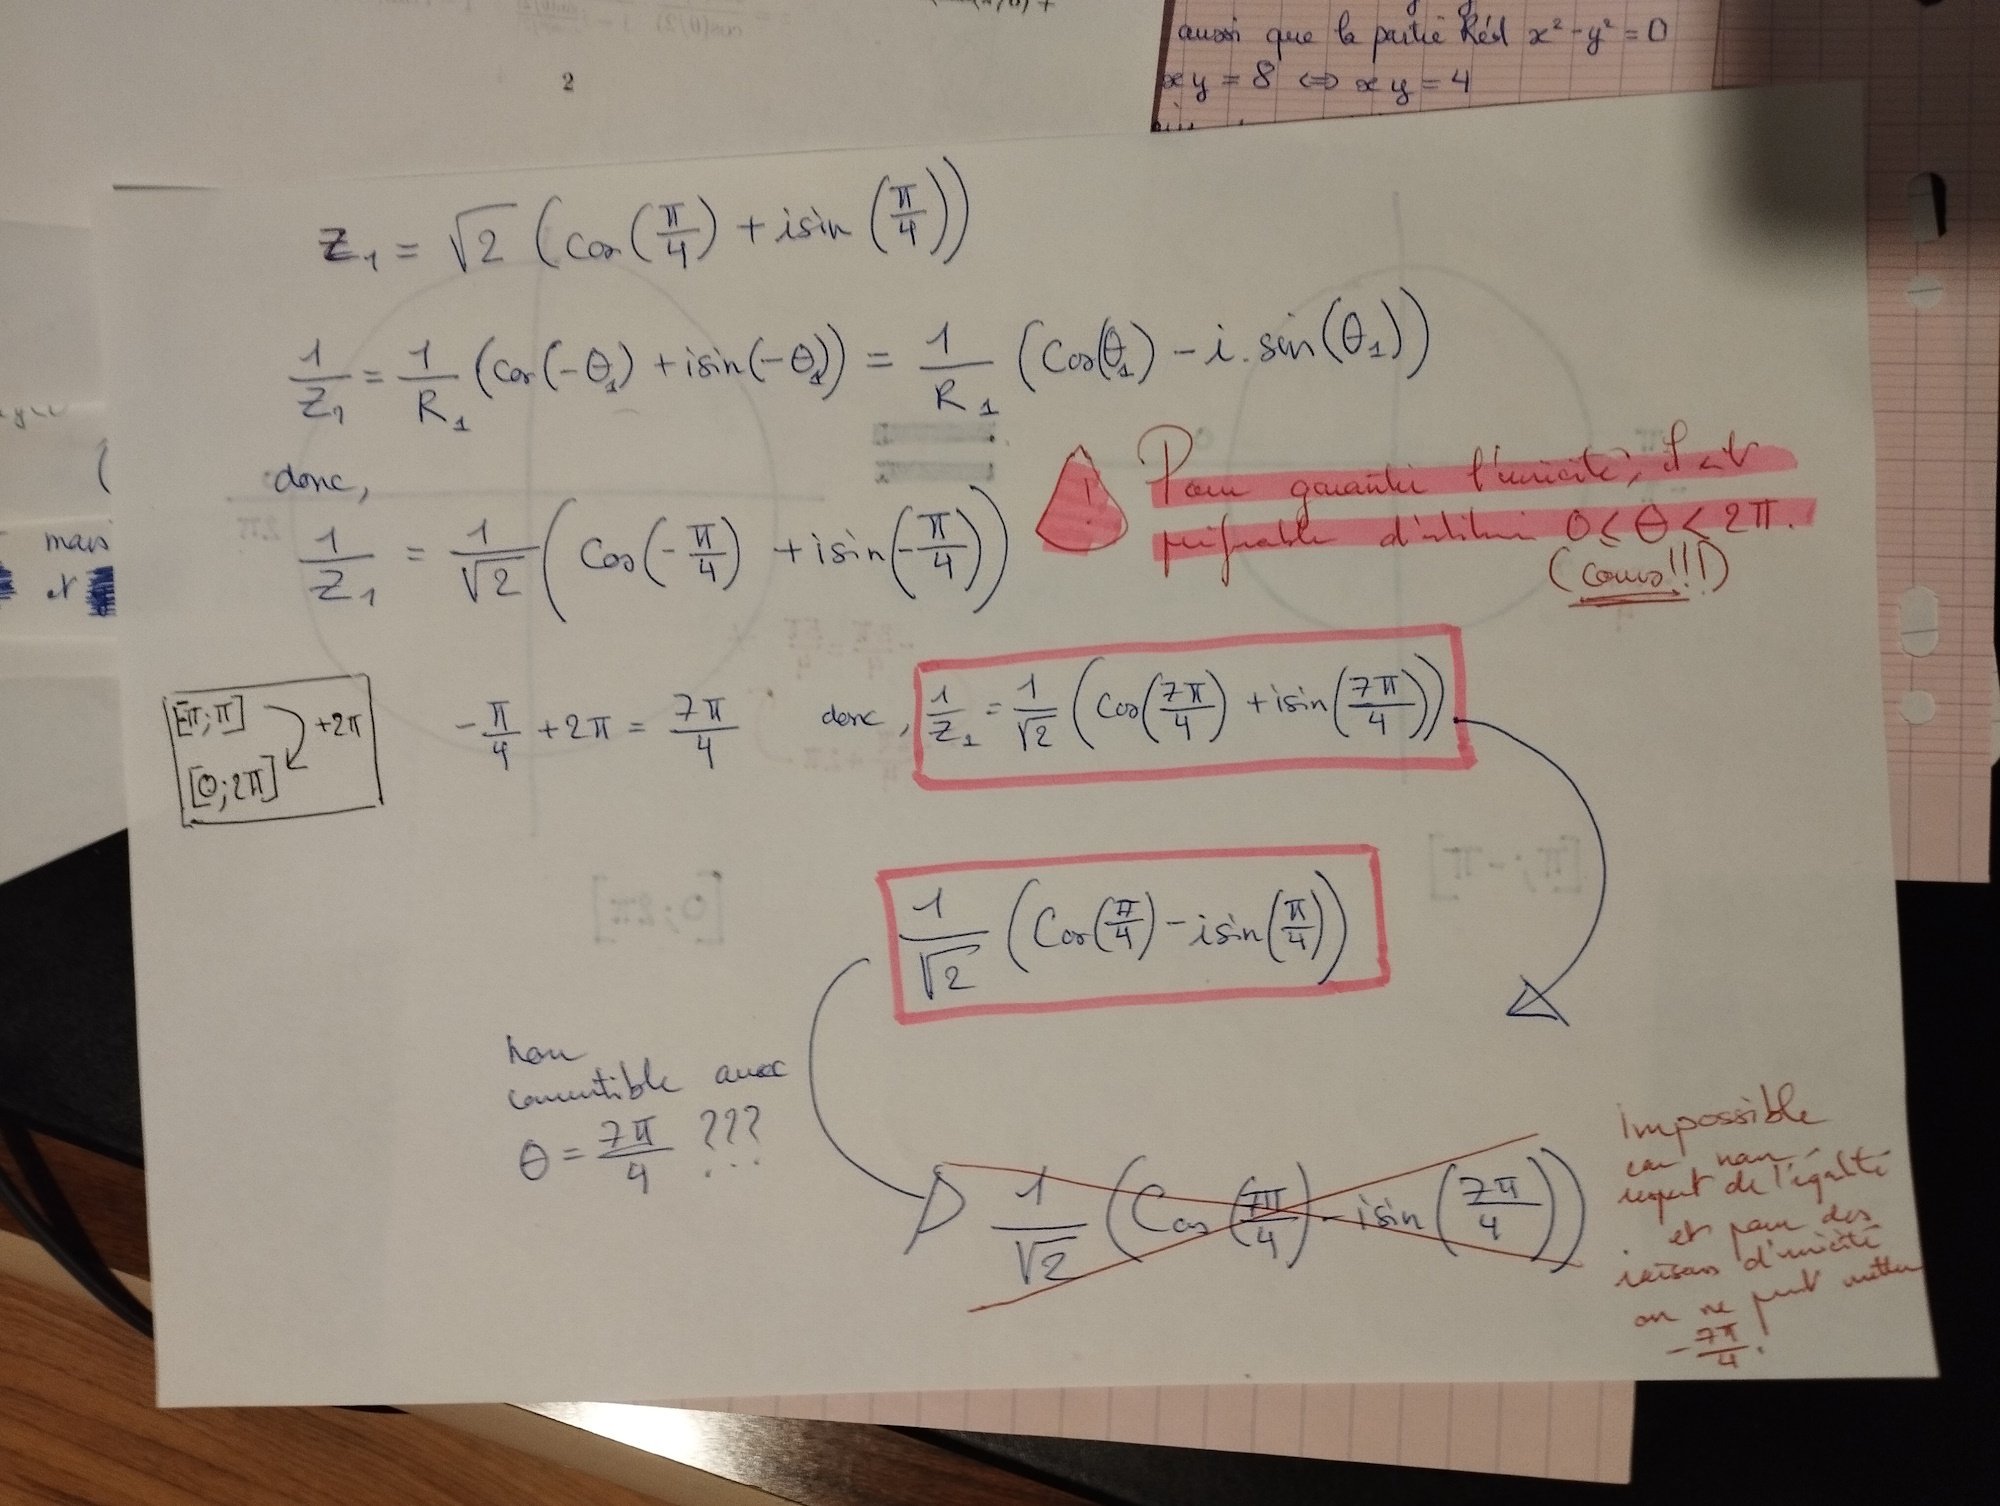 2
aussi que la partie Réel x² - y² = 0
xy = 8 ⇔ xy = 4
mais
et
Z₁ = √2 (cos(π/4) + isin(π/4))
1/Z₁ = 1/R₁ (cos(-θ₁) + isin(-θ₁)) = 1/R₁ (cos(θ₁) - i.sin(θ₁))
donc,
! Pour garantir l'unicité, il est
préférable d'utiliser 0 ≤ θ < 2π.
(cours!!!)
1/Z₁ = 1/√2 (cos(-π/4) + isin(-π/4))
[-π; π]
+2π
[0; 2π]
-π/4 + 2π = 7π/4 donc, 1/Z₁ = 1/√2 (cos(7π/4) + isin(7π/4))
1/√2 (cos(π/4) - isin(π/4))
non
convertible avec
θ = 7π/4 ???
1/√2 (cos(7π/4) - isin(7π/4))
Impossible
car non
respect de l'égalité
et pour des
raisons d'unicité
on ne peut mettre
-7π/4.